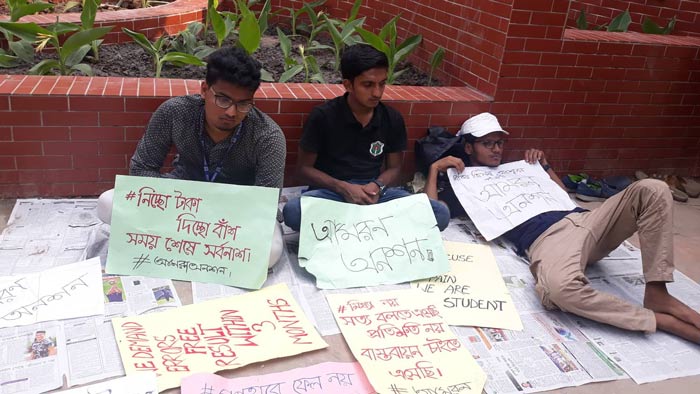 #নিচ্ছো টাকা
দিচ্ছো বাঁশ
সময় শেষে সর্বনাশ।
#আমরণ অনশন।
আমরণ
অনশন।
আমরণ
অনশন
অনশন
PAIN
WE ARE
STUDENT
WE DEMAND
ERRORS
FREE
RESULT
WITHIN
3
MONTHS
নয়
সত্য বলতে এসেছি
প্রতিশ্রুতি নয়
বাস্তবায়ন চাইতে
এসেছি।
#আমরণ
ফেল নয়